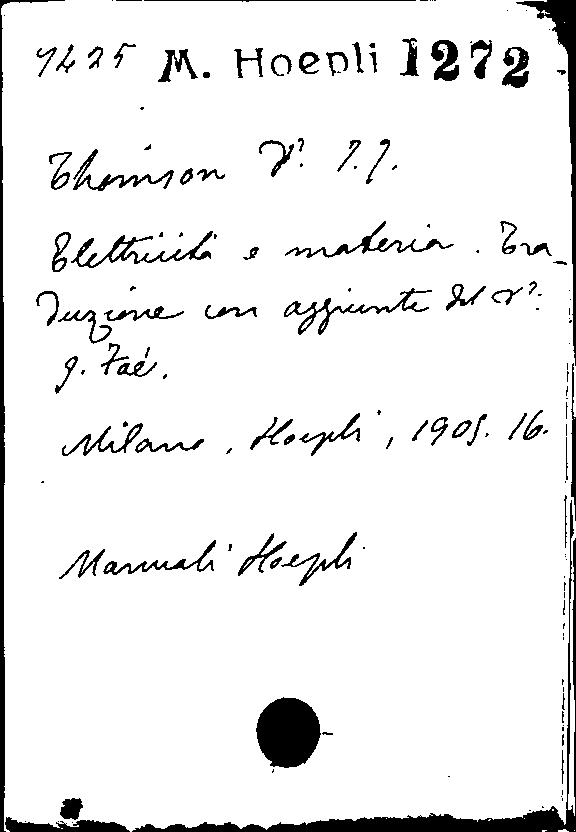 7425 M. Hoepli 1272
Thomson Dr. J. J.
Elettricità e materia. Tra-
duzione con aggiunte del Dr.
G. Faé.
Milano, Hoepli, 1905. 16.
Manuali Hoepli